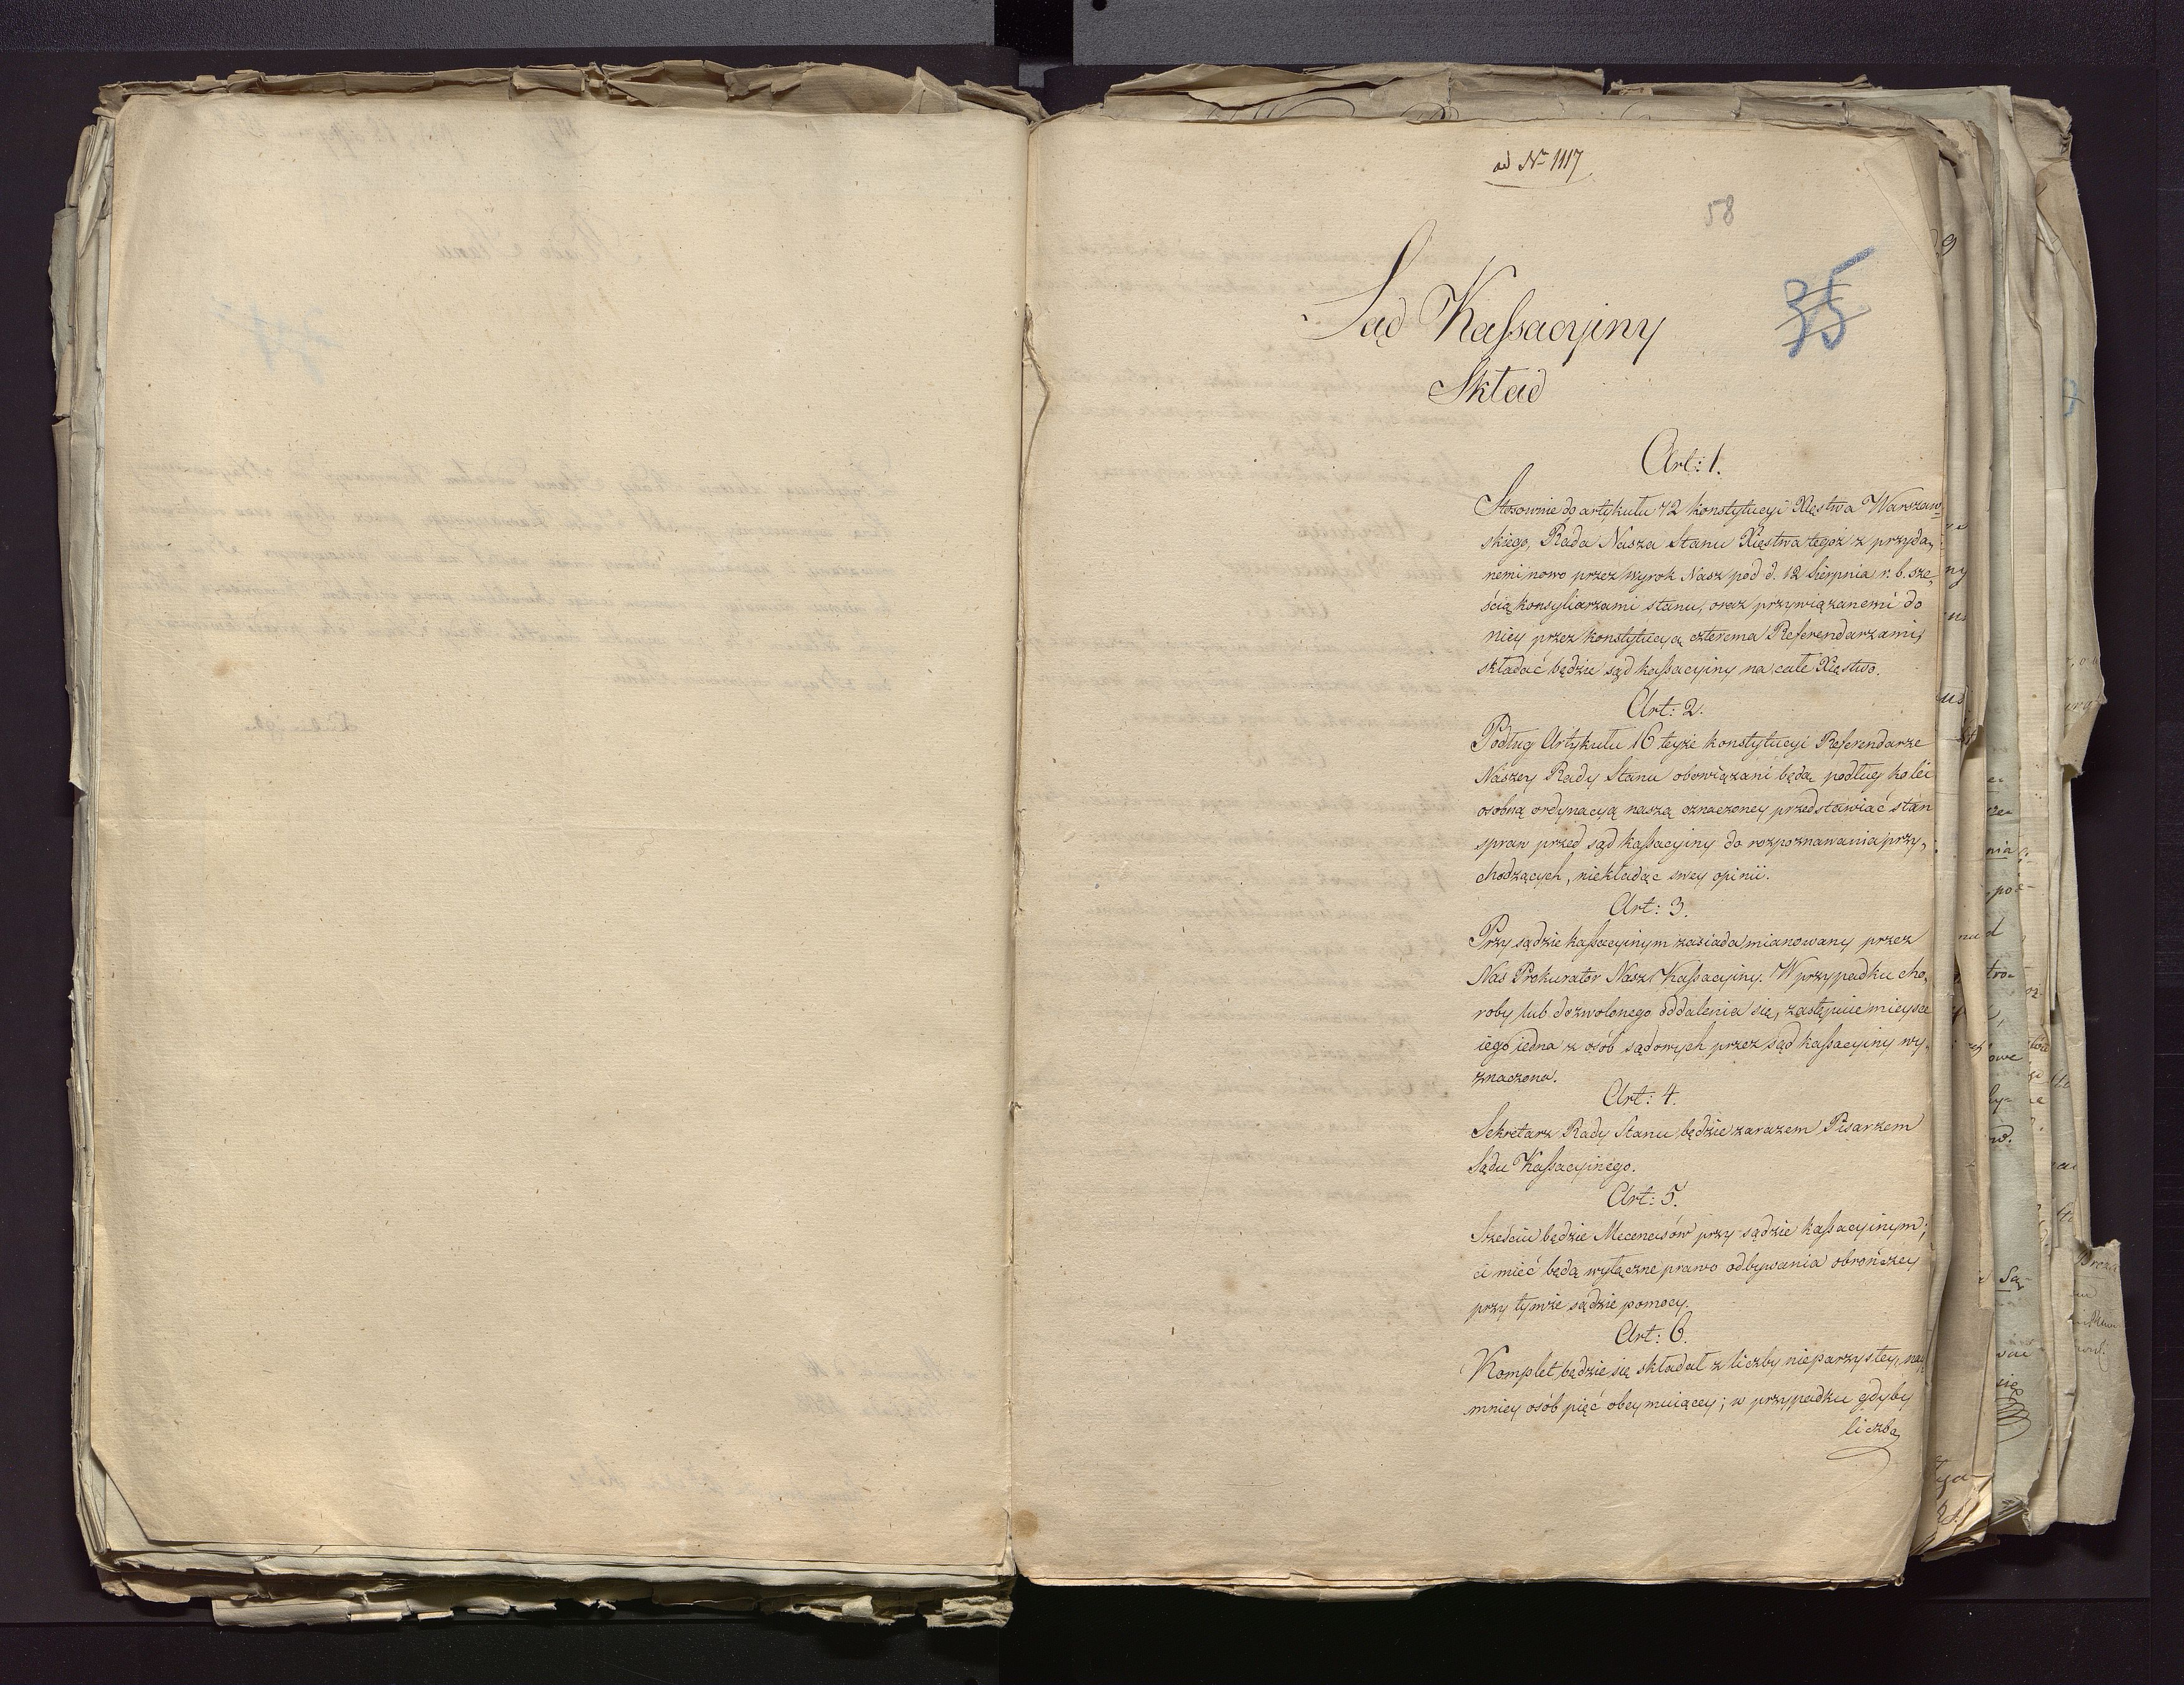 ad Nº 1117
58
35
Sąd Kassacyiny
Skład
Art: 1.
Stosownie do artykułu 72 konstytucyi Xięstwa Warszaw-
skiego, Rada Nasza Stanu Xięstwa tegoż z przyda-
nemi nowo przez wyrok Nasz pod d. 12 Sierpnia r. b. sze-
ścią konsyliarzami stanu, oraz przywiązanemi do
niey przez konstytucyą czterema Referendarzami,
składać będzie sąd kassacyiny na całe Xięstwo.
Art: 2.
Podług Artykułu 16 teyże konstytucyi Referendarze
Naszey Rady Stanu obowiązani będą podług kolei
osobną ordynacyą naszą oznaczoney przedstawiać stan
spraw przed sąd kassacyiny do rozpoznawania przy-
chodzących, niekładąc swey opinii.
Art: 3.
Przy sądzie kassacyinym zasiada mianowany przez
Nas Prokurator Nasz Kassacyiny. W przypadku cho-
roby lub dozwolonego oddalenia się, zastępuie mieysce
iego iedna z osób sądowych przez sąd kassacyiny wy-
znaczona.
Art: 4.
Sekretarz Rady Stanu będzie zarazem Pisarzem
Sądu Kassacyinego.
Art: 5.
Sześciu będzie Mecenasów przy sądzie kassacyinym;
ci mieć będą wyłączne prawo odbywania obrończey
przy tymże sądzie pomocy.
Art: 6.
Komplet będzie się składał z liczby nieparzystey, nay-
mniey osób pięć obeymuiącey; w przypadku gdyby
liczba